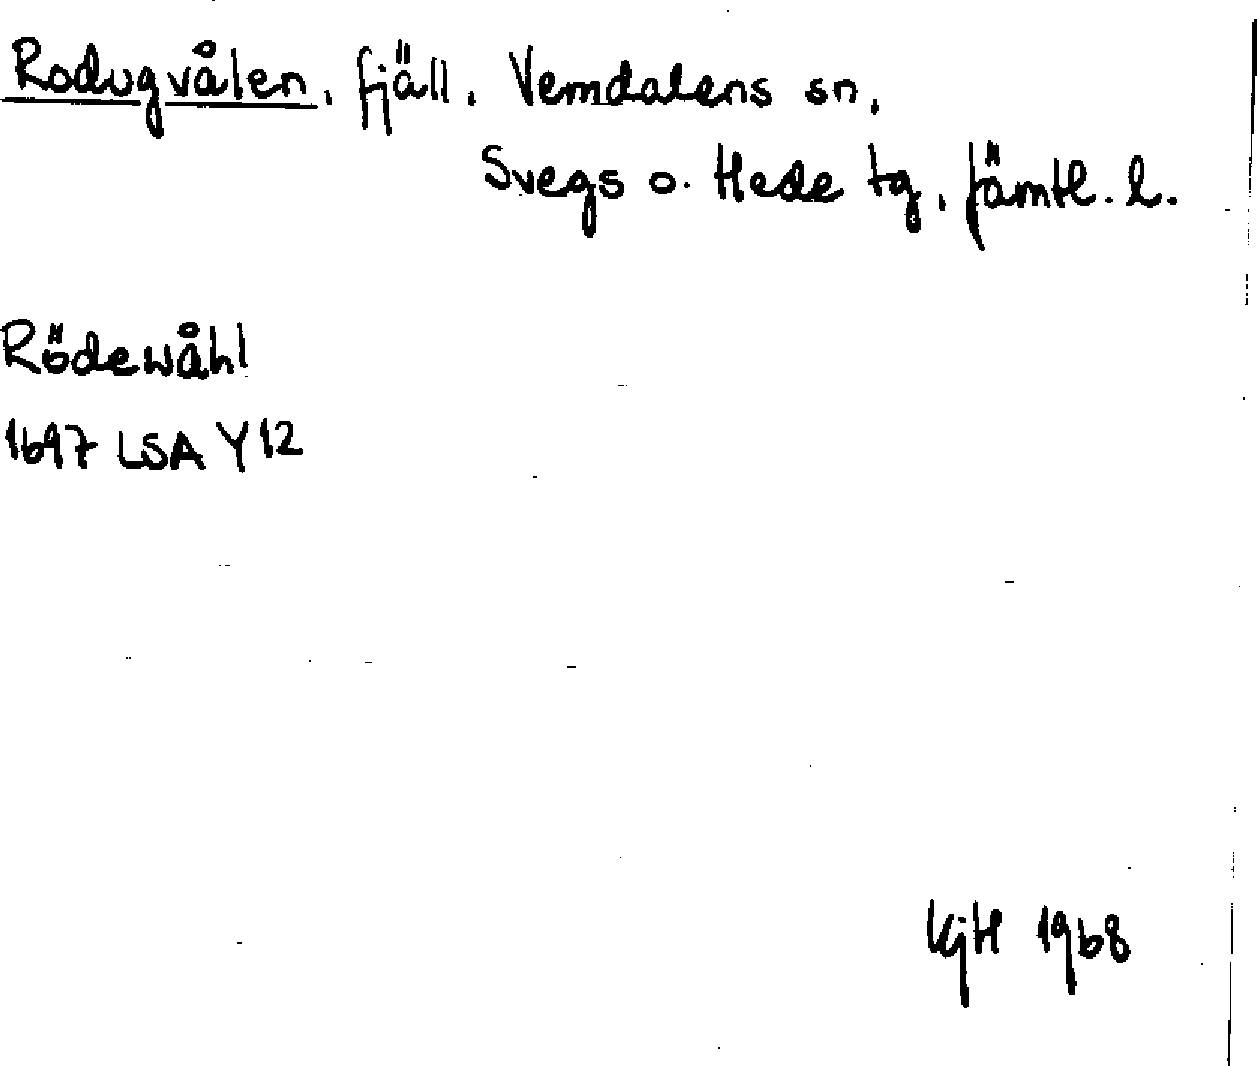 Rodugvålen, fjäll, Vemdalens sn,
Svegs o. Hede tg, Jämtl. l.
Rödewåhl
1697 LSA Y12
KjH 1968